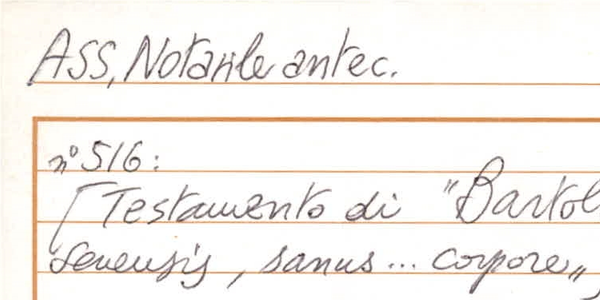 ASS, Notarile antec.
n° 516:
[Testamento di "Bartol
senensis, sanus... corpore„,